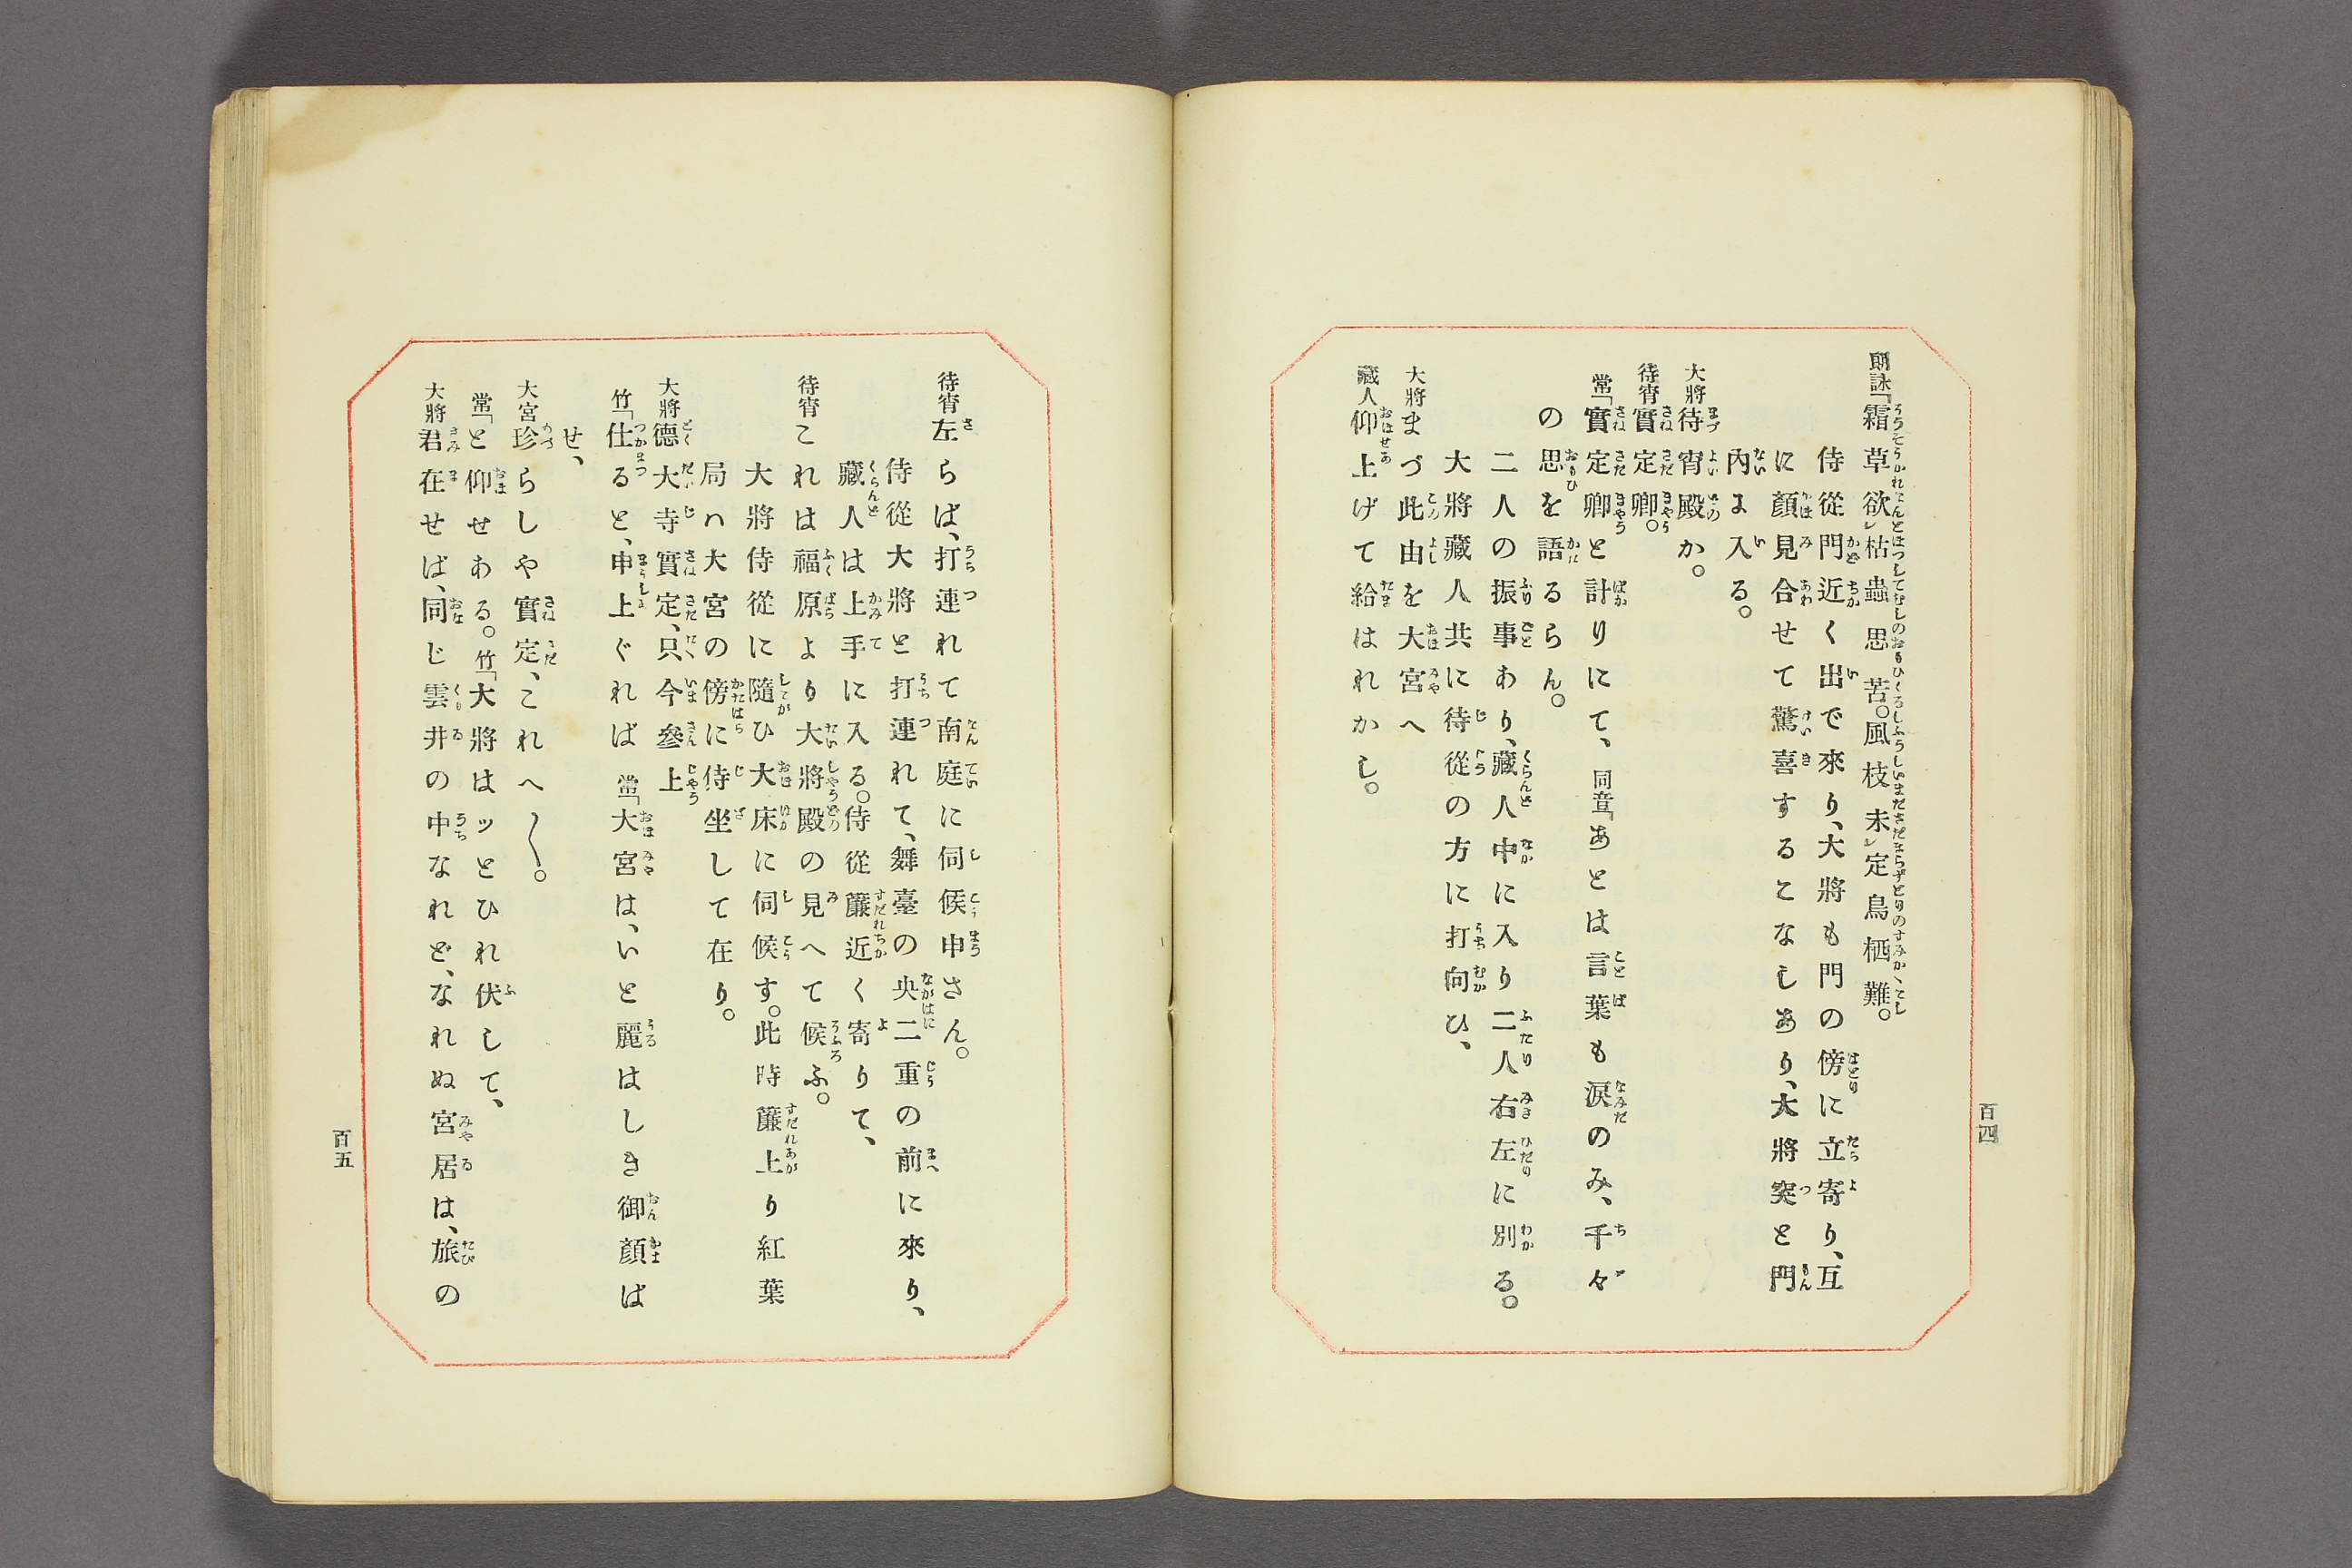 朗詠「霜草欲レ枯蟲思苦。風枝未レ定鳥栖難。
侍從門近く出で來り、大將も門の傍に立寄り、互
に顏見合せて驚喜するこなしあり、大將突と門
內ま入る。
大將 待宵殿か。
待宵 實定卿。
常「實定卿と計りにて、同音「あとは言葉も淚のみ、千々
の思を語るらん。
二人の振事あり、藏人中に入り二人右左に別る。
大將藏人共に待從の方に打向ひ、
大將 まづ此由を大宮へ
藏人 仰上げて給はれかし。
百四
待宵 左らば、打連れて南庭に伺候申さん。
侍從大將と打連れて、舞臺の央二重の前に來り、
藏人は上手に入る。侍從簾近く寄りて、
待宵 これは福原より大將殿の見へて候ふ。
大將侍從に隨ひ大床に伺候す。此時簾上り紅葉
局ハ大宮の傍に侍坐して在り。
大將 德大寺實定、只今參上
竹「仕ると、申上ぐれば 常「大宮は、いと麗はしき御顏ば
せ、
大宮 珍らしや實定、これへ〱。
常「と仰せある。竹「大將はッとひれ伏して、
大將 君在せば、同じ雲井の中なれど、なれぬ宮居は、旅の
百五